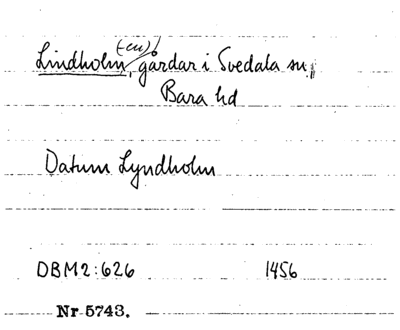 Lindholm (-en), gårdar i Svedala sn,
Bara hd
Datum Lyndholm
DBM2:626 1456
Nr 5743.